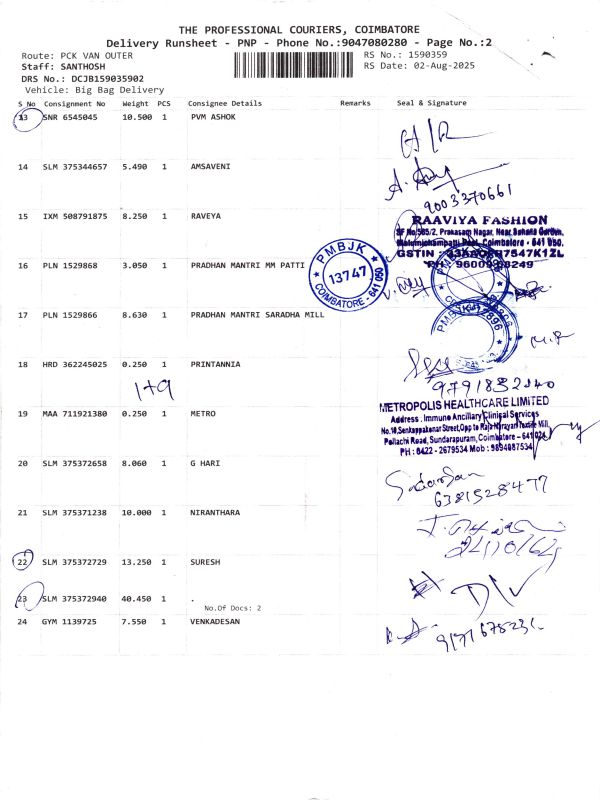 THE PROFESSIONAL COURIERS, COIMBATORE
Delivery Runsheet - PNP - Phone No.:9047080280 - Page No.:2
Route: PCK VAN OUTER
RS No.: 1590359
Staff: SANTHOSH
RS Date: 02-Aug-2025
DRS No.: DCJB159035902
Vehicle: Big Bag Delivery
S No Consignment No Weight PCS Consignee Details Remarks Seal & Signature
13 SNR 6545045 10.500 1 PVM ASHOK
14 SLM 375344657 5.490 1 AMSAVENI
9003370661
15 IXM 508791875 8.250 1 RAVEYA
RAAVIYA FASHION
SF No.565/2, Prakasam Nagar, Near
Coimbatore - 641 050.
GSTIN :
16 PLN 1529868 3.050 1 PRADHAN MANTRI MM PATTI
PMBJK
13747
COIMBATORE - 641 050
17 PLN 1529866 8.630 1 PRADHAN MANTRI SARADHA MILL
18 HRD 362245025 0.250 1 PRINTANNIA
1+9
19 MAA 711921380 0.250 1 METRO
METROPOLIS HEALTHCARE LIMITED
Address : Immune Ancillary Clinical Services
Pollachi Road, Sundarapuram, Coimbatore - 641 024
PH : 0422 - 2679534 Mob : 9894087534
20 SLM 375372658 8.060 1 G HARI
6381528477
21 SLM 375371238 10.000 1 NIRANTHARA
22 SLM 375372729 13.250 1 SURESH
23 SLM 375372940 40.450 1 .
No.Of Docs: 2
24 GYM 1139725 7.550 1 VENKADESAN